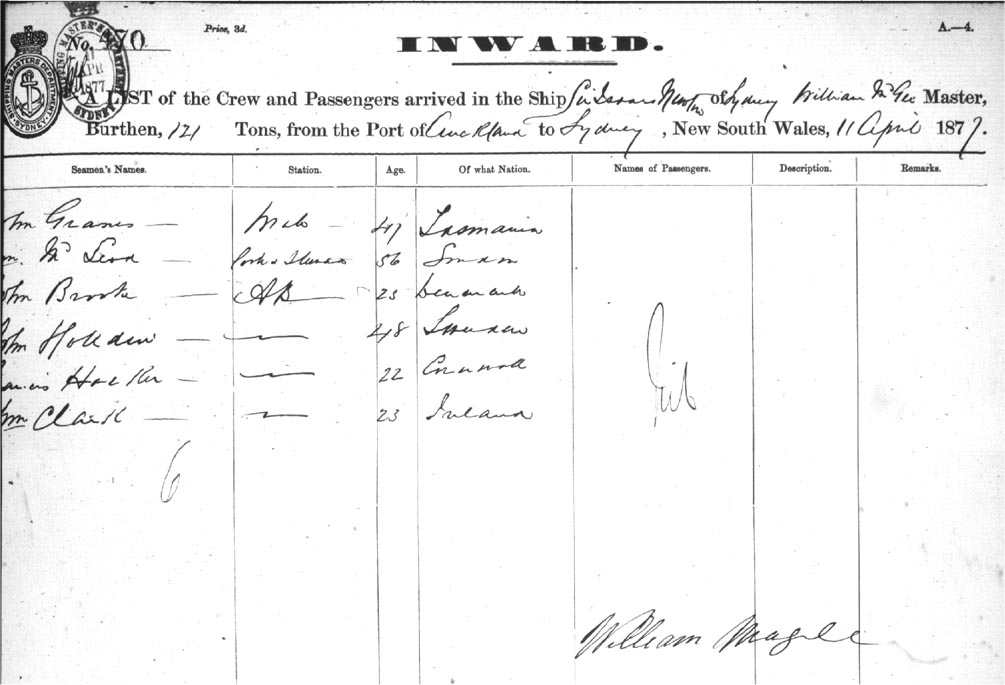 No. 470
Price, 3d.
A.—4.
SHIPPING MASTER'S DEPARTMENT
SYDNEY
11 APR 1877
SYDNEY
INWARD.
A LIST of the Crew and Passengers arrived in the Ship Sir Isaac Newton of Sydney William McGee Master,
Burthen, 121 Tons, from the Port of Auckland to Sydney, New South Wales, 11 April 1877.
Seamen's Names. Station. Age. Of what Nation. Names of Passengers. Description. Remarks.
Mate — Tasmania
Wm. McLeod — 56
John Brooke — AB — 23 Denmark
John — — 48 Sweden
Francis Hocker — — 22 Cornwall
Wm Clark — — 23 Ireland
Nil
6
William Magee